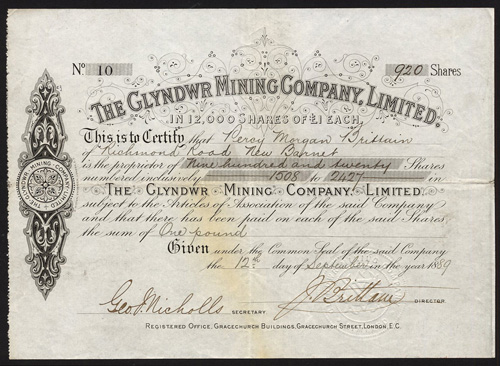 No. 10 920 Shares
THE GLYNDWR MINING COMPANY, LIMITED.
IN 12,000 SHARES OF £1 EACH.
This is to Certify that Percy Morgan Brittain
of Richmond Road New Barnet
is the proprietor of Nine hundred and twenty Shares
numbered inclusively 1508 to 2427 in
THE GLYNDWR MINING COMPANY, LIMITED.
subject to the Articles of Association of the said Company
and that there has been paid on each of the said Shares
the sum of One pound
Given under the Common Seal of the said Company
the 12th day of September in the year 1889
Geo. J. Nicholls SECRETARY J. Brittain DIRECTOR.
REGISTERED OFFICE, GRACECHURCH BUILDINGS, GRACECHURCH STREET, LONDON. E.C.
THE GLYNDWR MINING COMPANY LIMITED